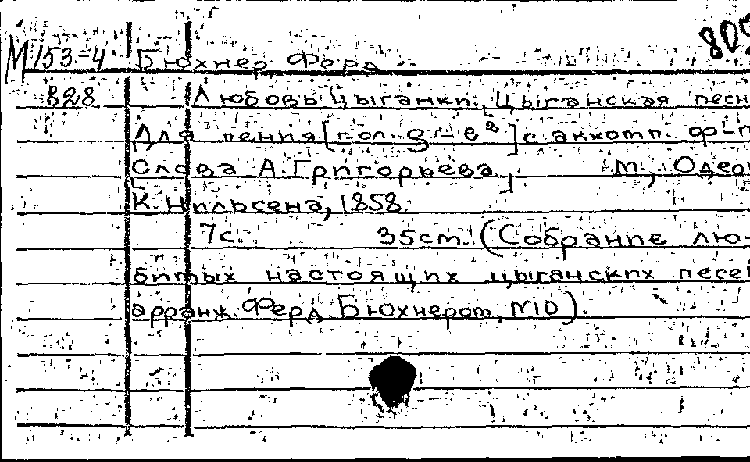 805
М 153-4 Бюхнер Ферд
828 Любовь цыганки. Цыганская песн
Для пения [гол. g – e²] с аккомп. ф-п
Слова А. Григорьева. М., Одес
К. Нильсена, 1858.
7с. 35cm. (Собрание лю-
битых настоящих цыганских песе
арранж. Ферд Бюхнером, №10).